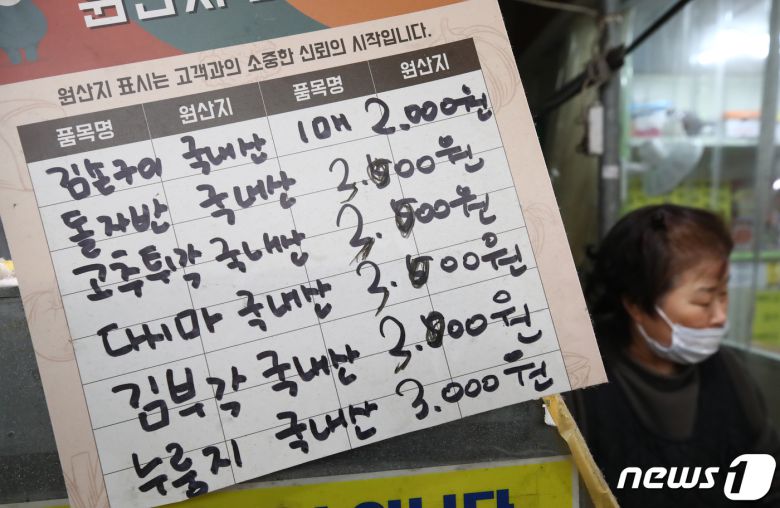 원산지
원산지 표시는 고객과의 소중한 신뢰의 시작입니다.
품목명 원산지 품목명 원산지
김손구이 국내산 1매 2.000원
돌자반 국내산 3.000원
고추튀각 국내산 3.000원
다시마 국내산 3.000원
김부각 국내산 3.000원
누룽지 국내산 3.000원
입니다
news1